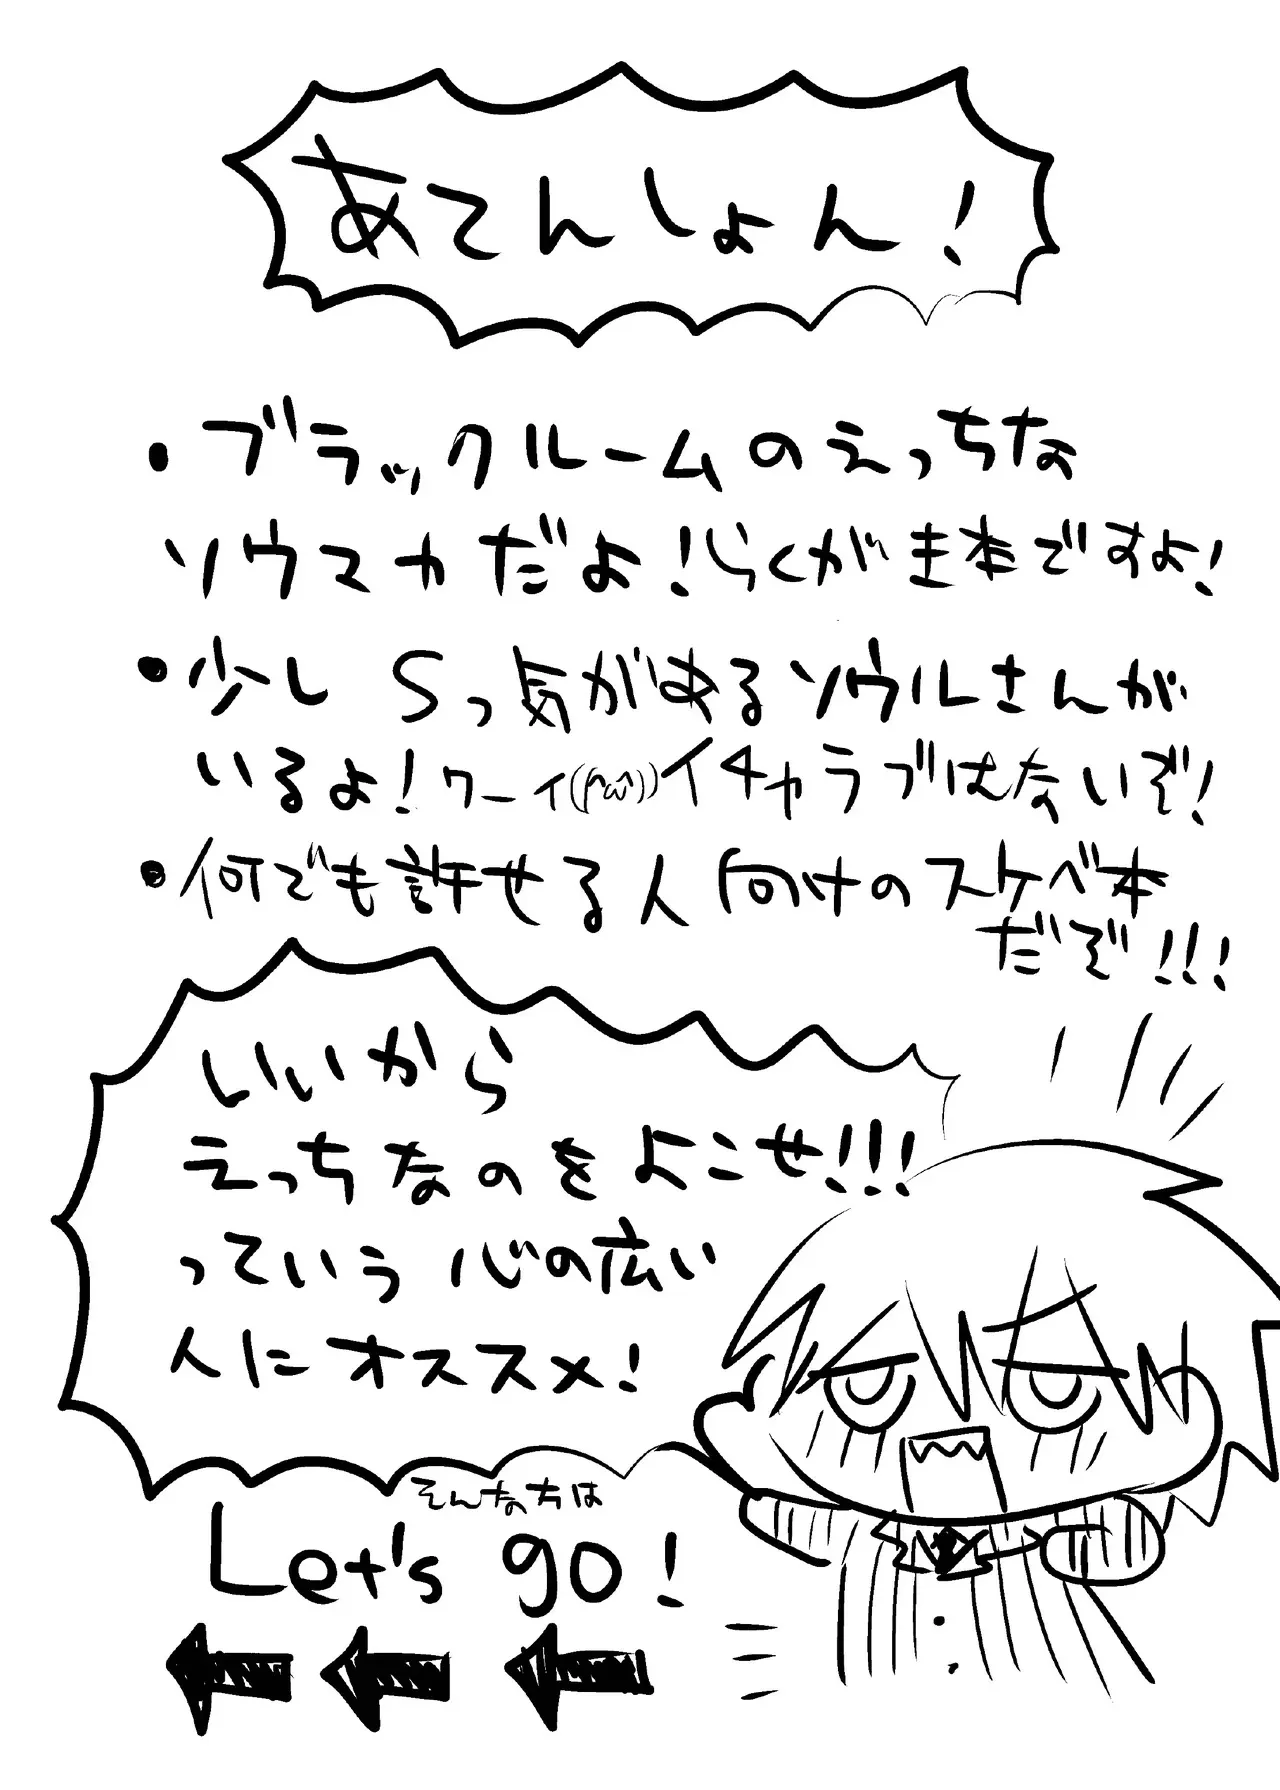 あてんしょん！
・ブラックルームのえっちな
ソウマカだよ！らくがき本ですよ！
・少しSっ気があるソウルさんが
いるよ！ワーイ((^ω^))イチャラブはないぞ！
・何でも許せる人向けのスケベ本
だぞ!!!
いいから
えっちなのをよこせ!!!
っていう心の広い
人にオススメ！
そんな方は
Let's go!